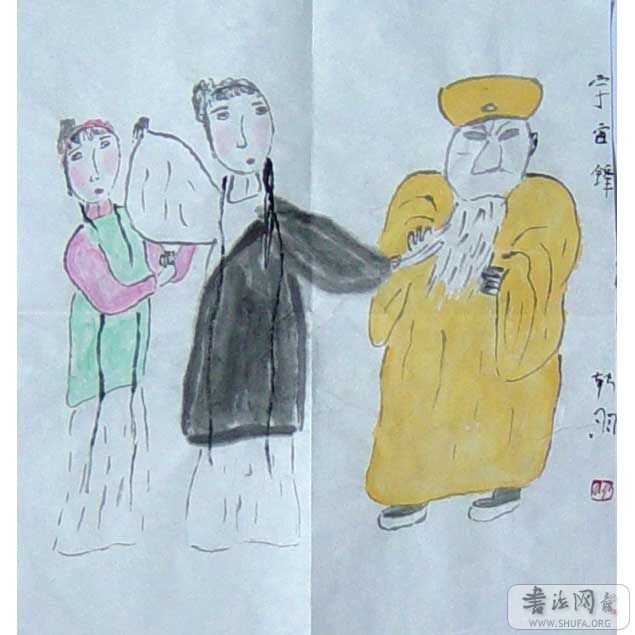 宇宙鋒
韩羽
書法网
WWW.SHUFA.ORG